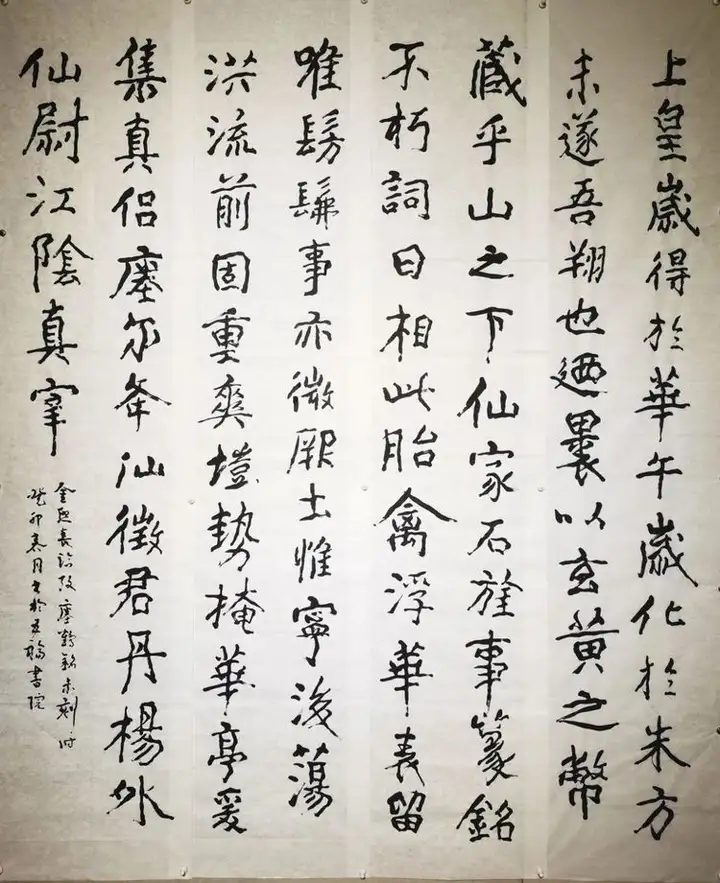 上皇歲得於華午歲化於朱方
未遂吾翔也迺裹以玄黃之幣
藏乎山之下仙家石旌事篆銘
不朽詞曰相此胎禽浮華表留
唯髣髴事亦微厥土惟寧後蕩
洪流前固重爽塏勢掩華亭爰
集真侶瘞尔峯山徵君丹楊外
仙尉江陰真宰
癸卯 月書於五福書院